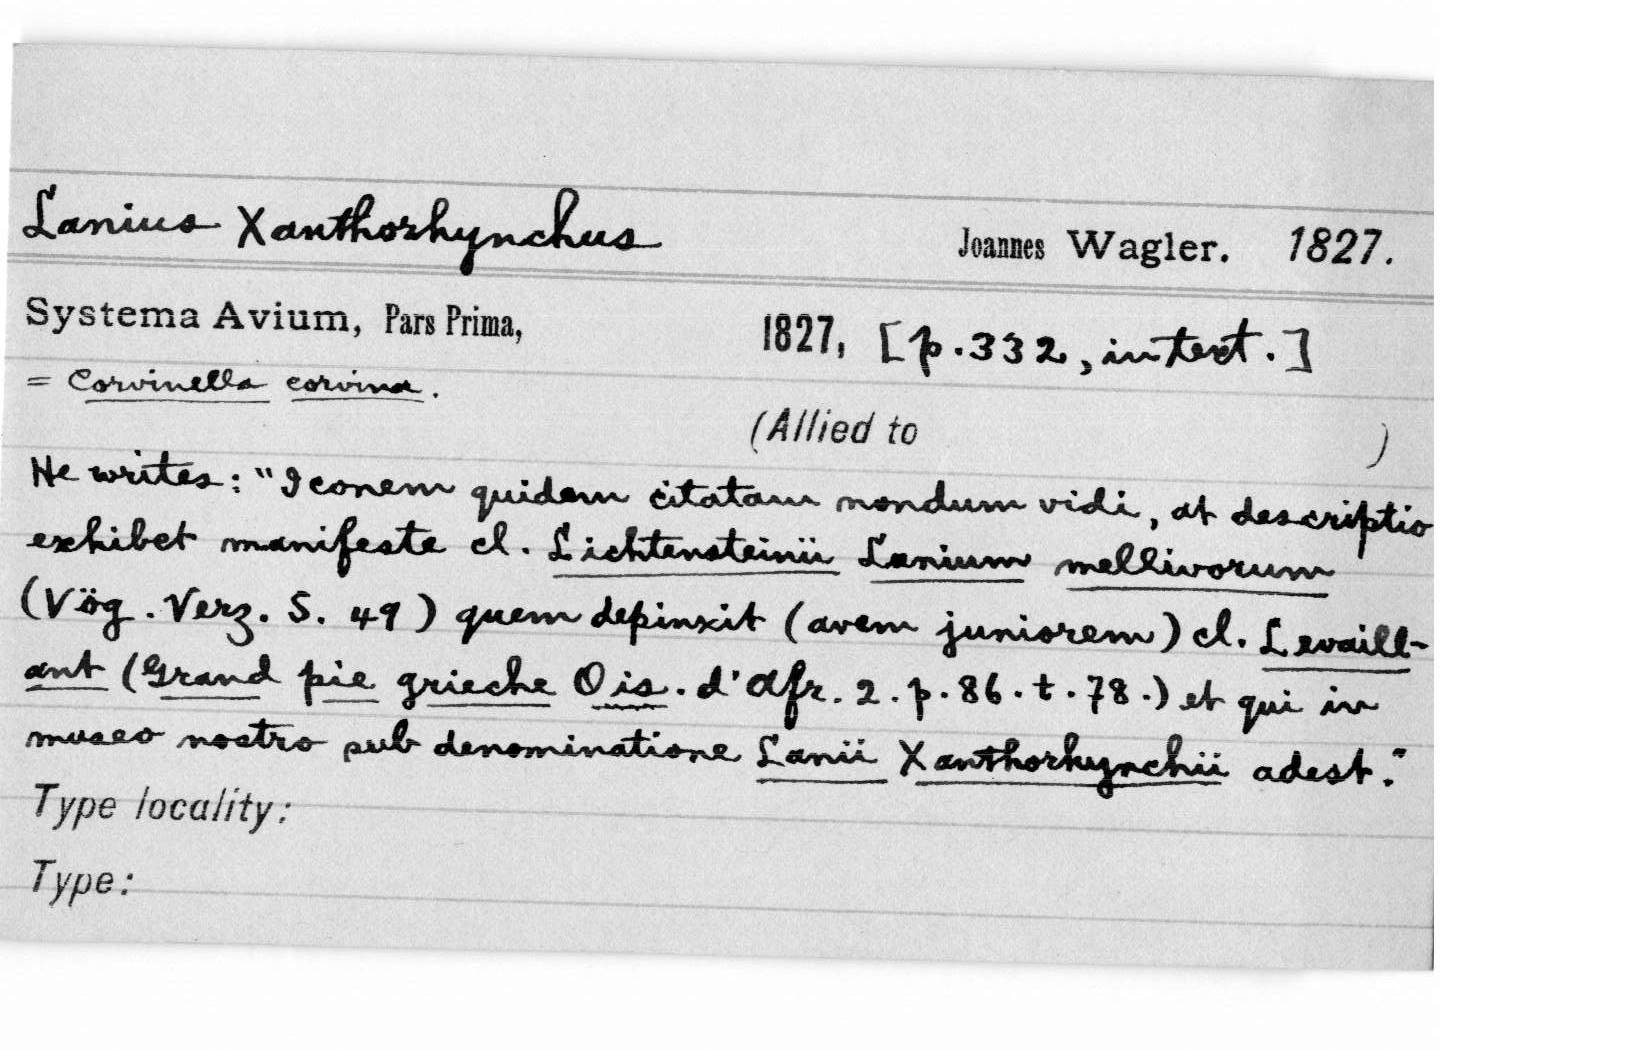 Lanius Xanthorhynchus Joannes Wagler. 1827.
Systema Avium, Pars Prima, 1827, [p.332, in text.]
= Corvinella corvina.
(Allied to )
He writes: "Iconem quidem citatam nondum vidi, at descriptio
exhibet manifeste cl. Lichtensteinii Lanium mellivorum
(Vög. Verz. S. 49) quem depinxit (avem juniorem) cl. Levaill-
ant (Grand pie grieche Ois. d'Afr. 2. p. 86. t. 78.) et qui in
museo nostro sub denominatione Lanii Xanthorhynchii adest."
Type locality:
Type: